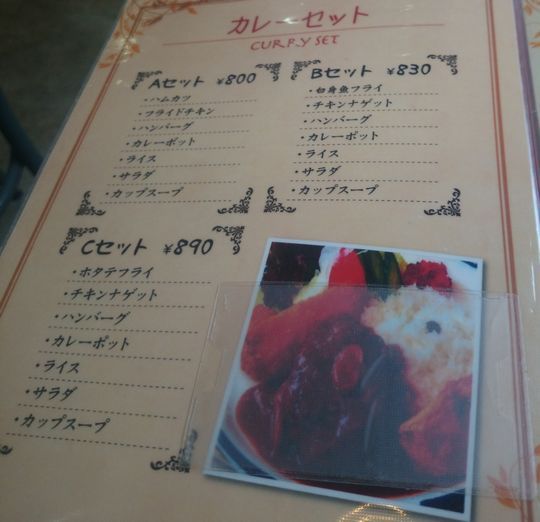 カレーセット
CURRY SET
Aセット ¥800
・ハムカツ
・フライドチキン
・ハンバーグ
・カレーポット
・ライス
・サラダ
・カップスープ
Bセット ¥830
・白身魚フライ
・チキンナゲット
・ハンバーグ
・カレーポット
・ライス
・サラダ
・カップスープ
Cセット ¥890
・ホタテフライ
・チキンナゲット
・ハンバーグ
・カレーポット
・ライス
・サラダ
・カップスープ